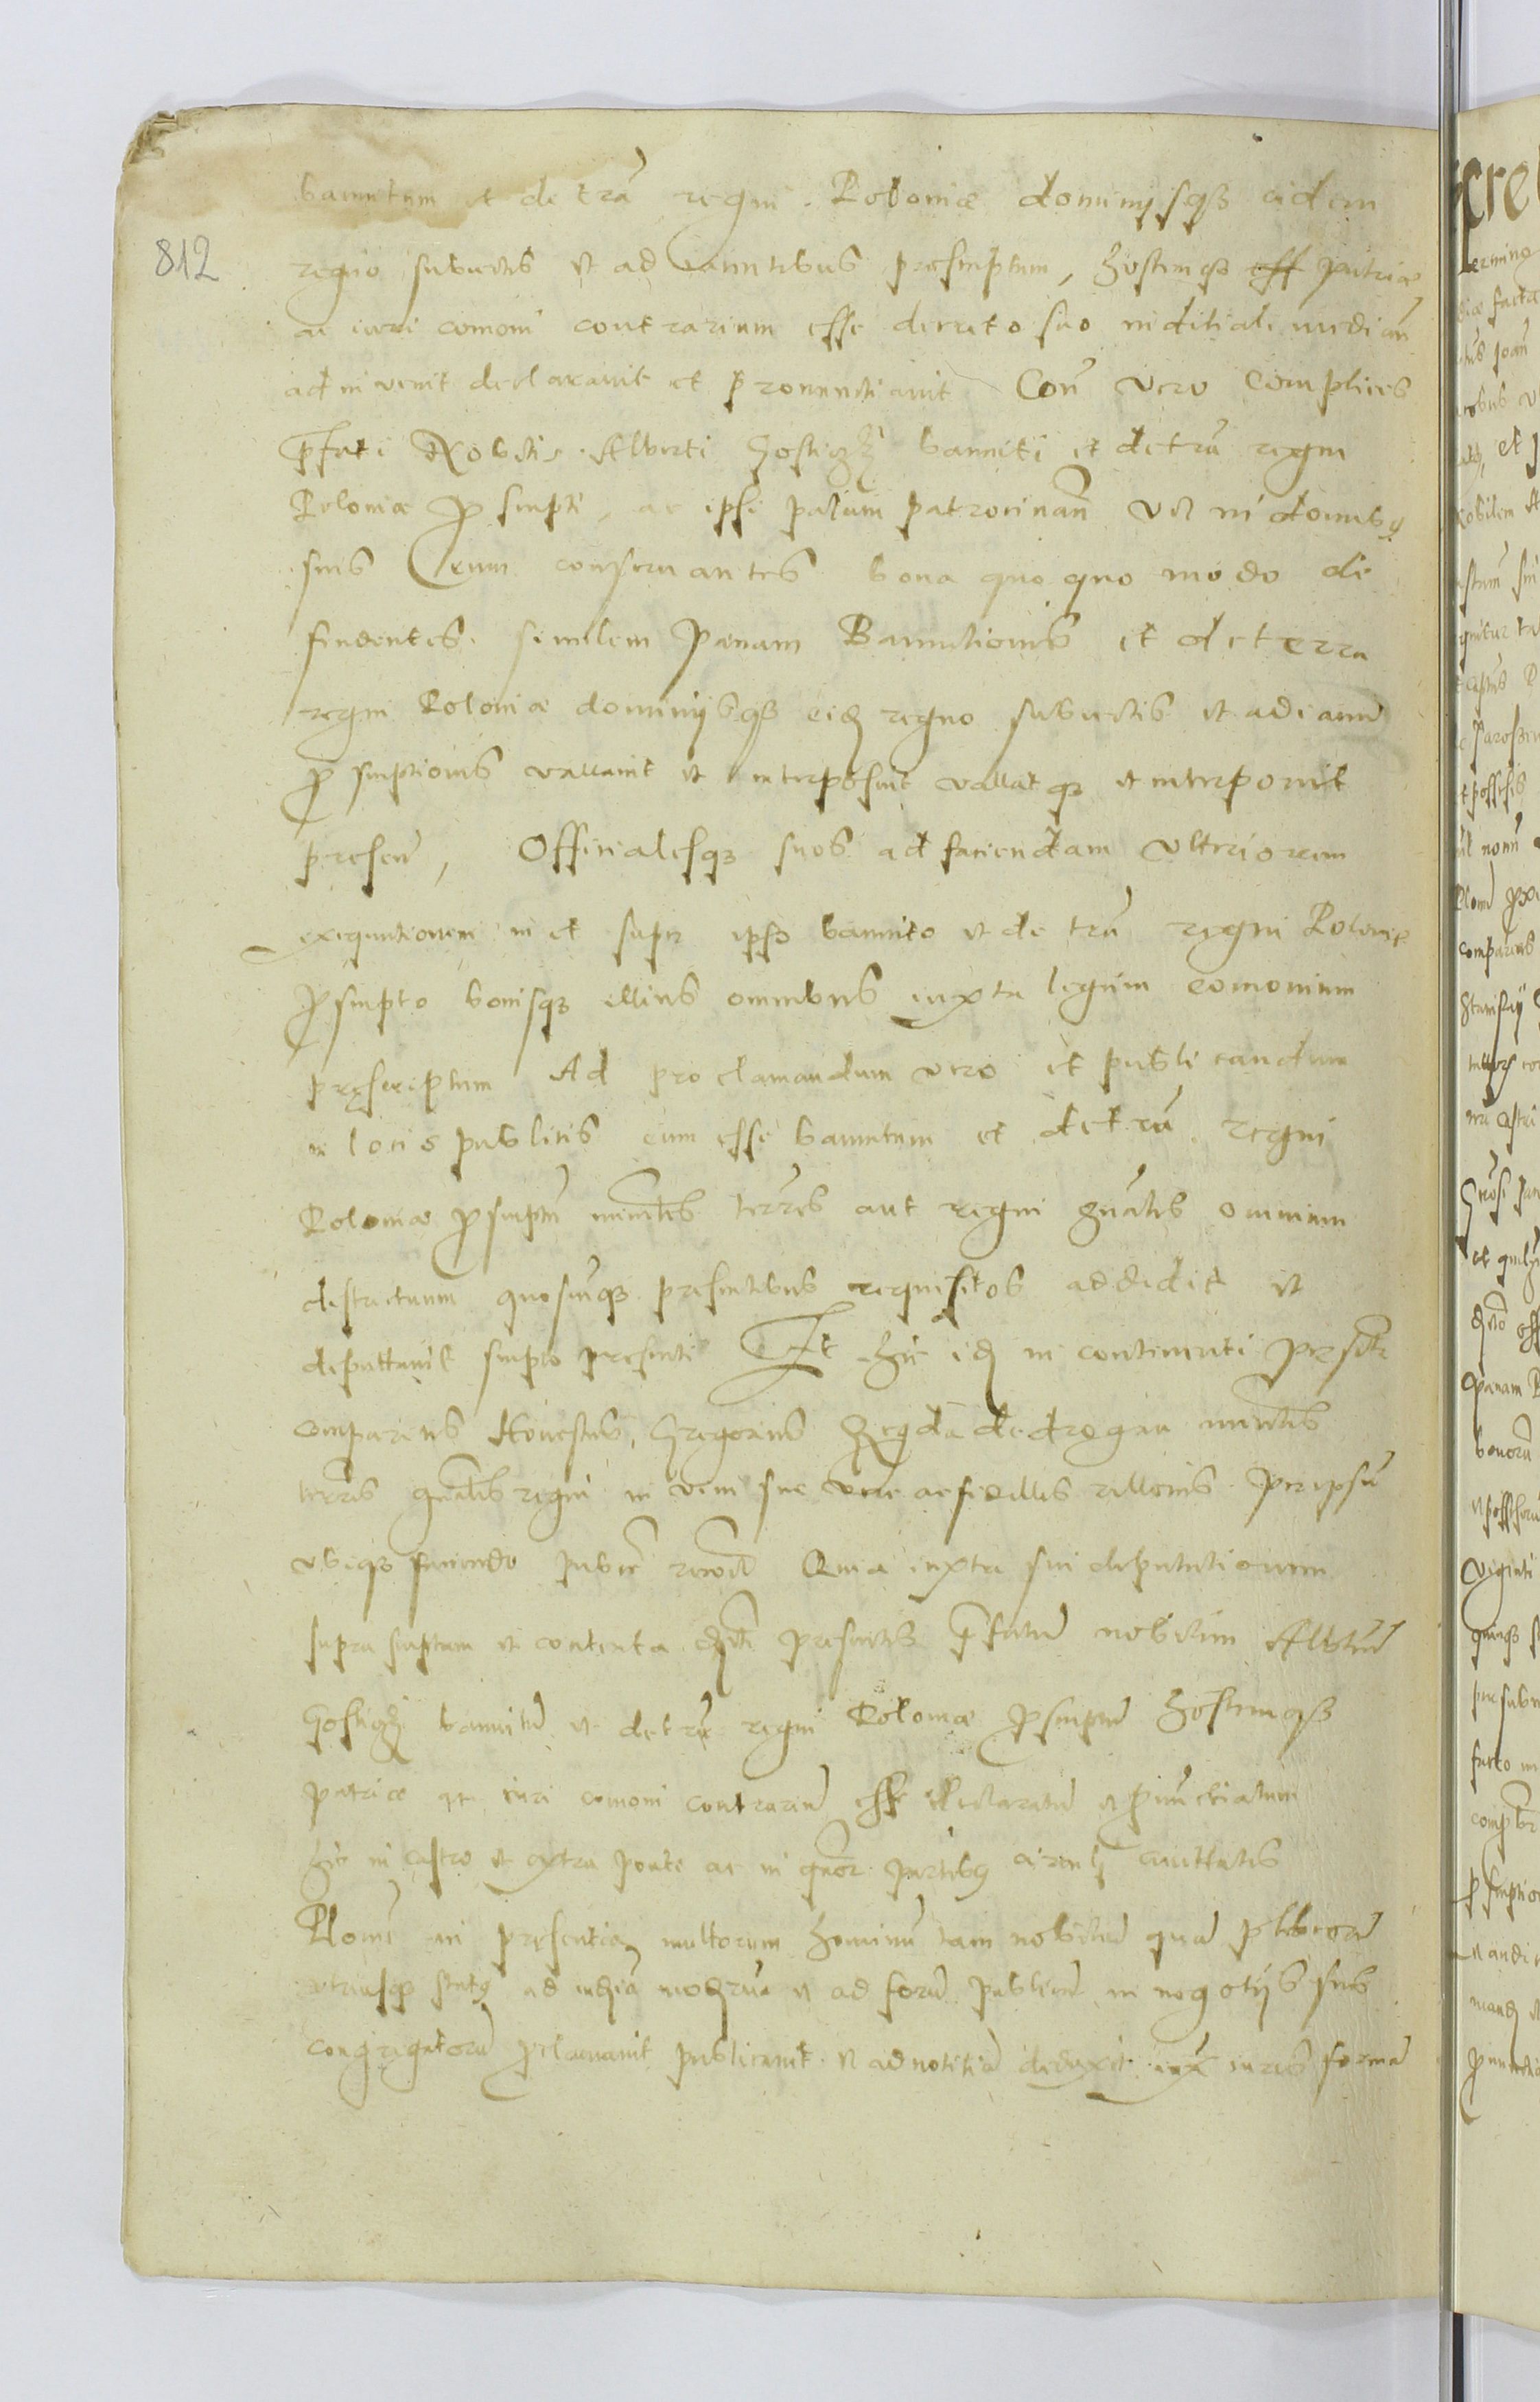 bannitum et de tra regni Poloniæ dominijsqз eidem
812
regno subiectis et adiacentibus proscriptum, Hostemqз patriæ
ac iuri comoni contrarium esse decreto suo iuditiali median
adinvenit declaravit et pronunctiavit Con vero complices
pfati Nobilis Alberti Gosticzki banniti et de tra regni
Poloniæ pscripti, ac ipsi palam patrocinan vel in domibus
suis eum conservantes bona quoquo modo de
fendentes. similem pænam Bannitionis et de terra
regni Poloniæ dominijsqз eid regno subiectis et adiacen
pscriptionis vallavit et interposuit vallatqз et interponit
presen, Officialesqз suos ad faciendam ulteriorem
exequutionem in et super ipso bannito et de tra regni Poloniæ
pscripto bonisqз illius omnibus iuxta legum comonium
pręscriptum Ad proclamandum vero et publicandum
in locis publicis eum esse bannitum et de tra regni
Poloniæ pscriptu ministles terres aut regni gnales omnium
districtuum quoscunqз presentibus requisitos addidit et
deputtavit scripto presenti Et hic id in continenti psonlr
comparens Honestus Gregorius de drogan ministlis
terrris gnalis regni in vim sue vere ac fidellis rellonis per ipsu
ubiqз faciendo publice recovit Quia iuxta sui deputationem
supra scriptam et contenta presentis pfatum nobilem Albertum
Gosticzki bannitu et de tra regni Poloniæ pscriptu Hostemqз
patriæ ac iuri comoni contrariu esse declaratu et pnunctiatum
hic in castro et extra ponte ac in quor partibus circuli civittatis
Plocen in pręsentia multorum hominu tam nobiliu quam plebeioru
utriusqз status ad iudicia modrna et ad foru publicu in negotijs suis
congregatoru pclamavit publicavit et ad notitia deduxit iux iuris forma